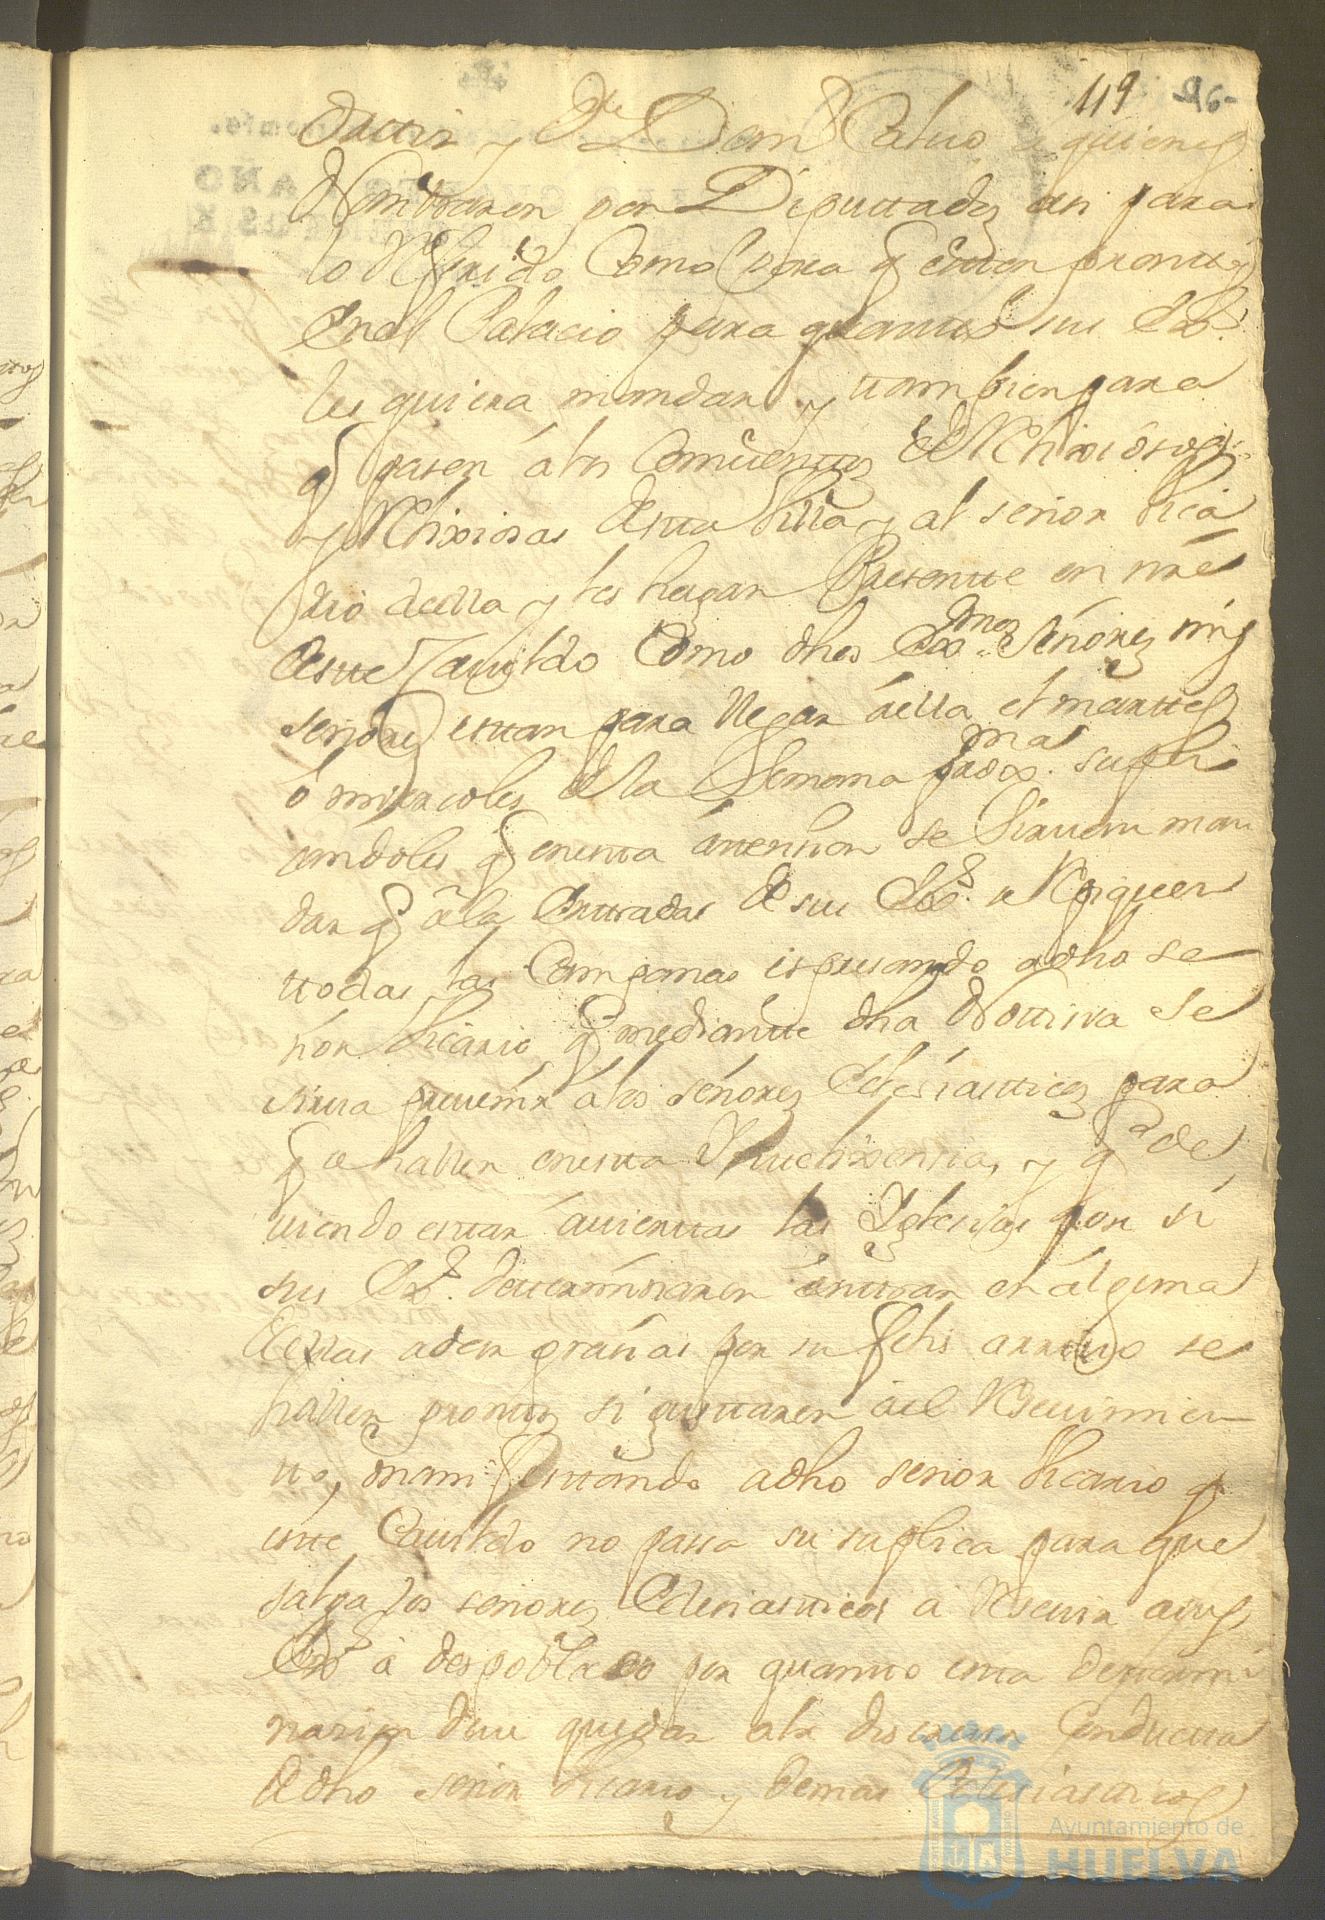 119 96
y Dn Calvo a quienes
Nombraron por Diputados asi para
lo Referido Como para q esten promttos
En el Palacio para quantto sus Exs.
les quiera mandar y ttambien para
q pasen á los Comventtos de Relixiosos
y Relixiosas destta Villa y al señor Vica
rio della y les hagan Presentte en nre
destte Cavildo Como dhos Exmos Señores mis
señores esttan para llegar áella el marttes
ó miercoles de la Semana proxma supli
candoles q enestta attension se sirvan man
dar q a la Enttradas de sus Exs. se Repiquen
ttodas las Campanas expresando adho se
ñor Vicario q mediantte dha Notticia se
sirva prevenir á los señores Eclesiastticos para
q se hallen enestta Yntteligensia, y q de
viendo esttar áviertas las Yglesias por si
sus Exs. detterminaren enttrar en álguna
dellas adar grasias por su felis arrivo se
hallen promttos si gusttaren áel Resevimien
tto, manifesttando adho señor Vicario q
estte Cavildo no passa su suplica para que
salga los señores Eclesiastticos a Resevir asus
Exs a despoblado por quantto estta dettermi
nasion deve quedar ala discretta Conductta
de dho señor Vicario y demas Eclesiasticos
Ayuntamiento de
HUELVA